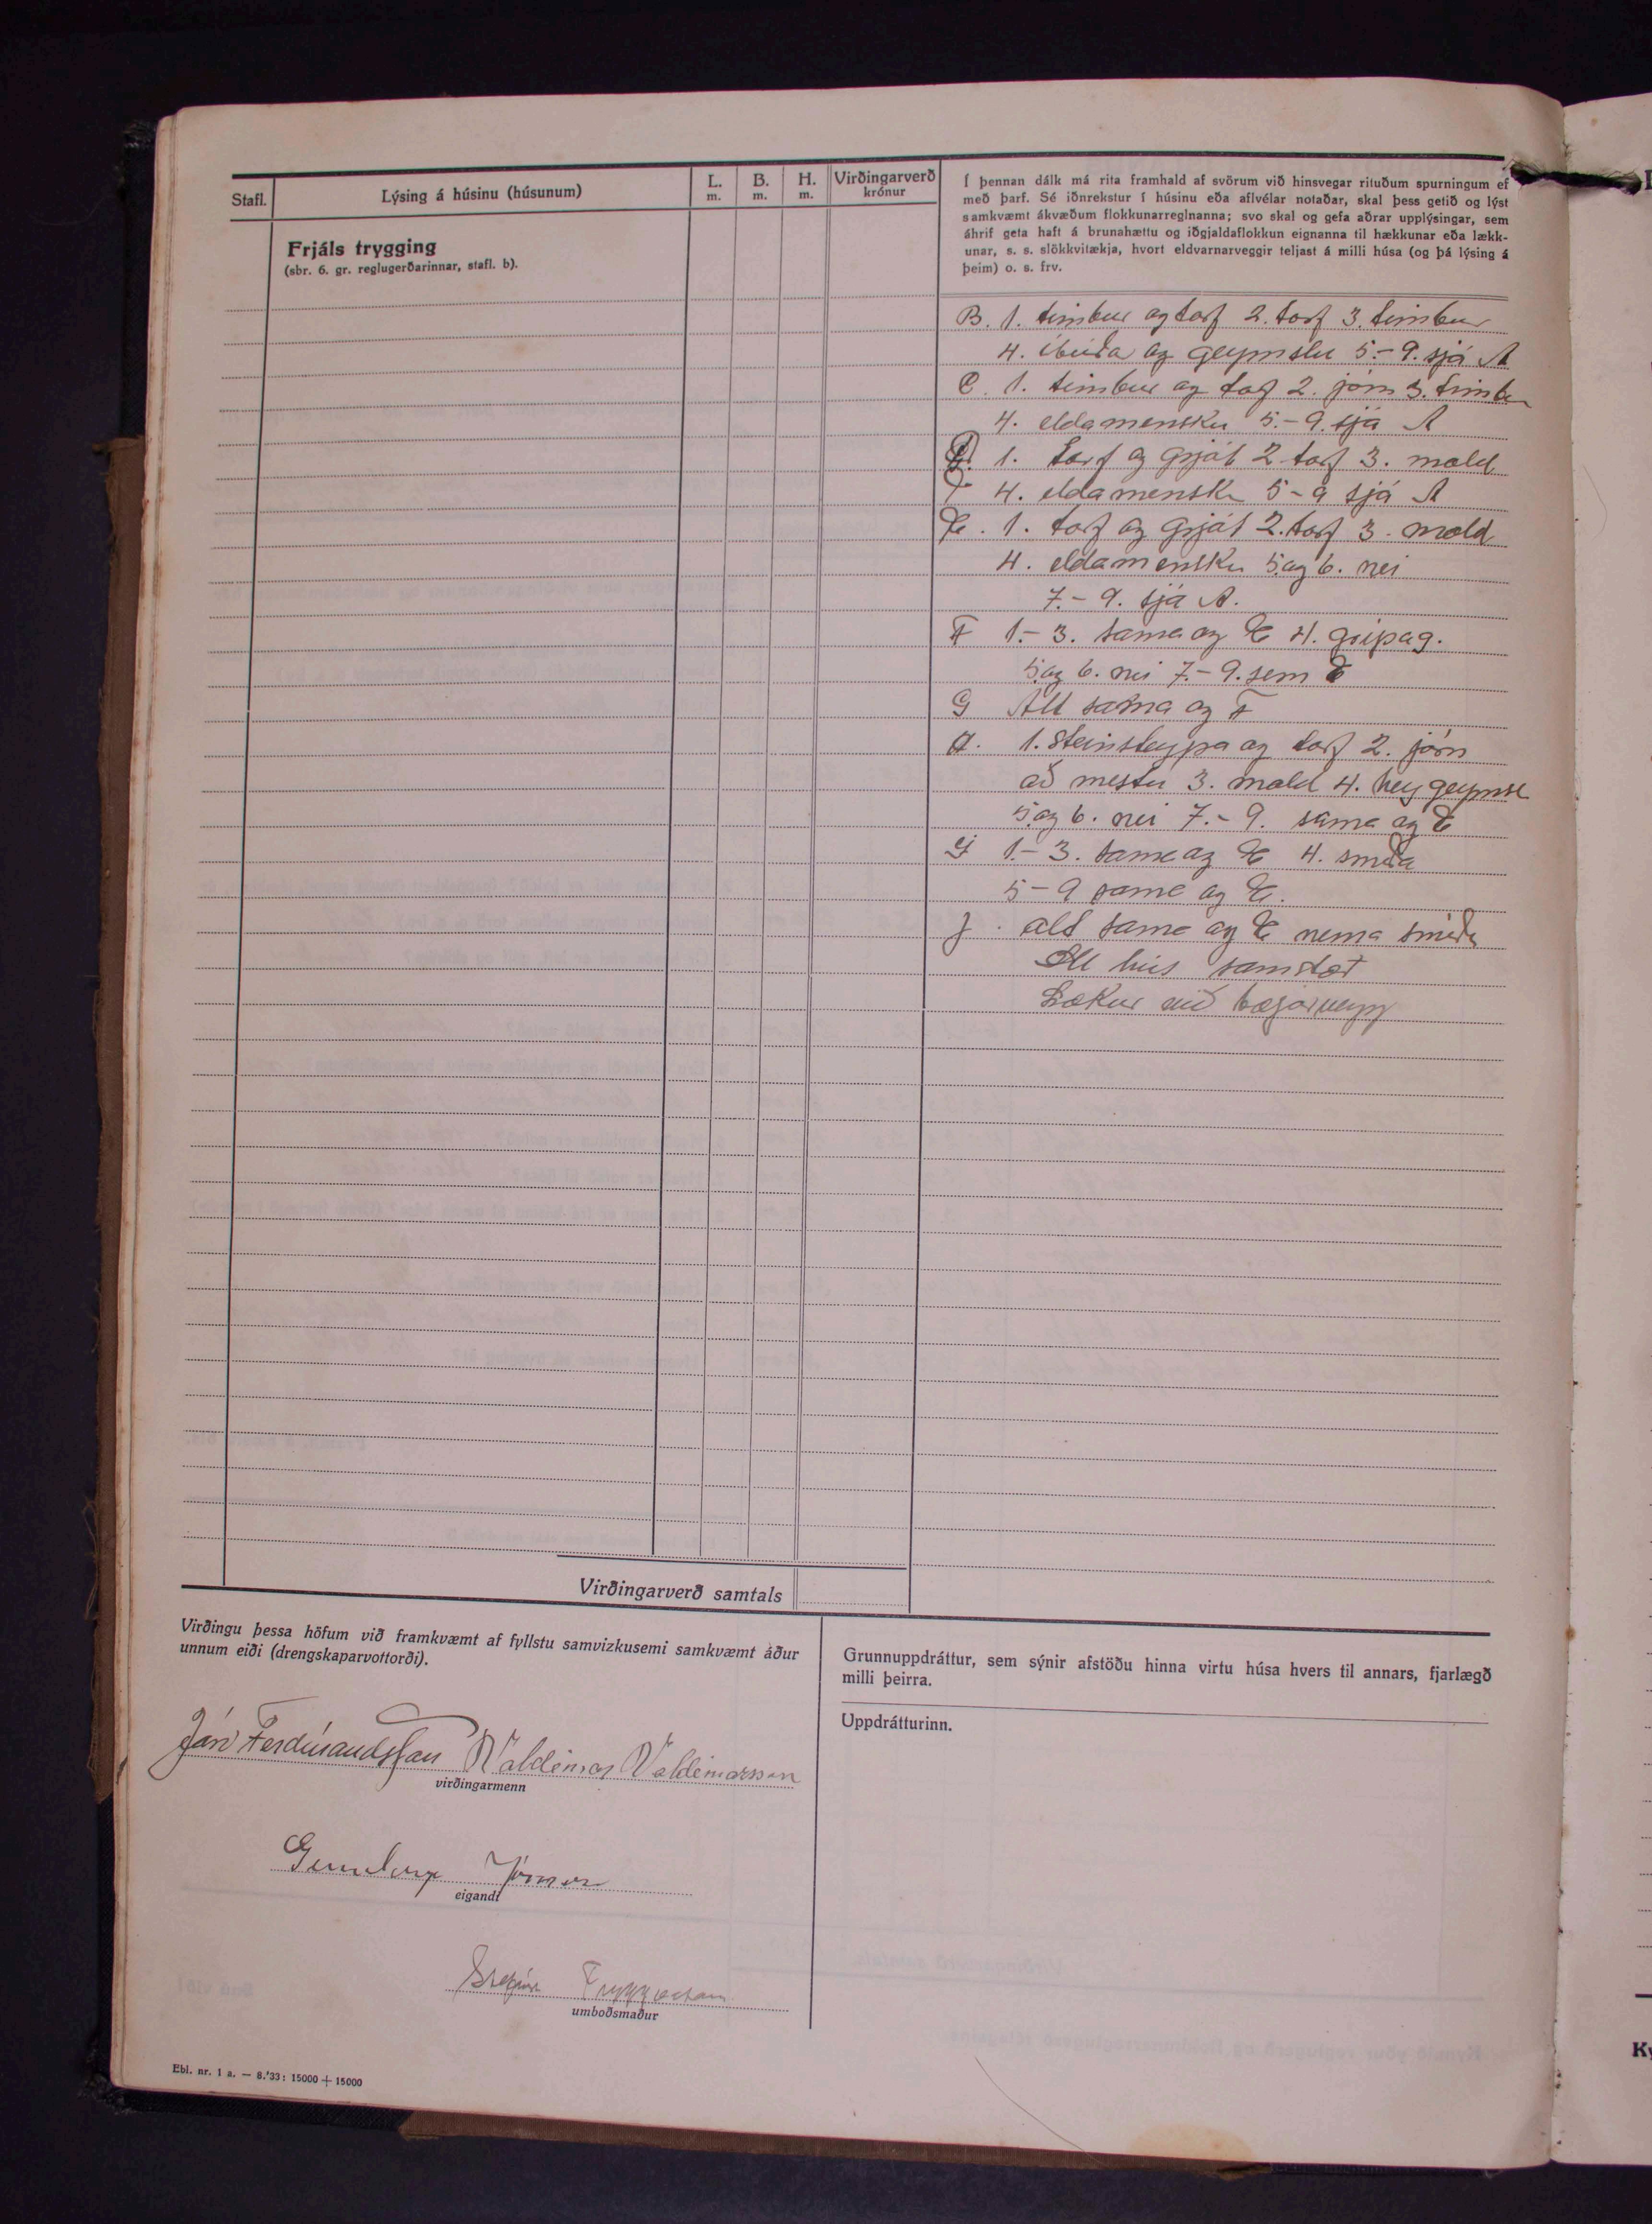 Stafl.
Lýsing á húsinu (húsunum)
L.
m.
B.
m.
H.
m.
Virðingarverð
krónur
Frjáls trygging
(sbr. 6. gr. reglugerðarinnar, stafl. b).
Í þennan dálk má rita framhald af svörum við hinsvegar rituðum spurningum ef
með þarf. Sé iðnrekstur í húsinu eða aflvélar notaðar, skal þess getið og lýst
samkvæmt ákvæðum flokkunarreglnanna; svo skal og gefa aðrar upplýsingar, sem
áhrif geta haft á brunahættu og iðgjaldaflokkun eignanna til hækkunar eða lækk-
unar, s. s. slökkvitækja, hvort eldvarnarveggir teljast á milli húsa (og þá lýsing á
þeim) o. s. frv.
B. 1. timbur og torf 2. torf 3. timbur
4. íbúða og geymslu 5.-9. sjá A
C. 1. timbur og torf 2. járn 3. timbur
4. eldamensku 5.-9. sjá A
D. 1. torf og grjót 2 torf 3. mold
4. eldamensku 5-9 sjá A
E. 1. torf og grjót 2. torf 3. mold
4. eldamensku 5. og 6. nei
7.-9. sjá A.
F 1.-3. sama og E 4. gripag.
5. og 6. nei 7.-9. sem E
G Alt sama og F
H. 1. Steinsteypa og torf 2. járn
að mestu 3. mold 4. heygeymsl
5. og 6. nei 7.-9. sama og E
I 1.-3. sama og E 4. smíða
5-9 sama og E.
J. alt sama og E nema smíða
Öll hús samstæð
Lækur við bæjarvegg
Virðingarverð samtals
Virðingu þessa höfum við framkvæmt af fyllstu samvizkusemi samkvæmt áður
unnum eiði (drengskaparvottorði).
Jón Ferdínandsson Valdimar Valdimarsson
virðingarmenn
Gunnlaug
eigandi
Stefán Tryggvason
umboðsmaður
Grunnuppdráttur, sem sýnir afstöðu hinna virtu húsa hvers til annars, fjarlægð
milli þeirra.
Uppdrátturinn.
Ebl. nr. 1 a. — 8.'33: 15000 + 15000